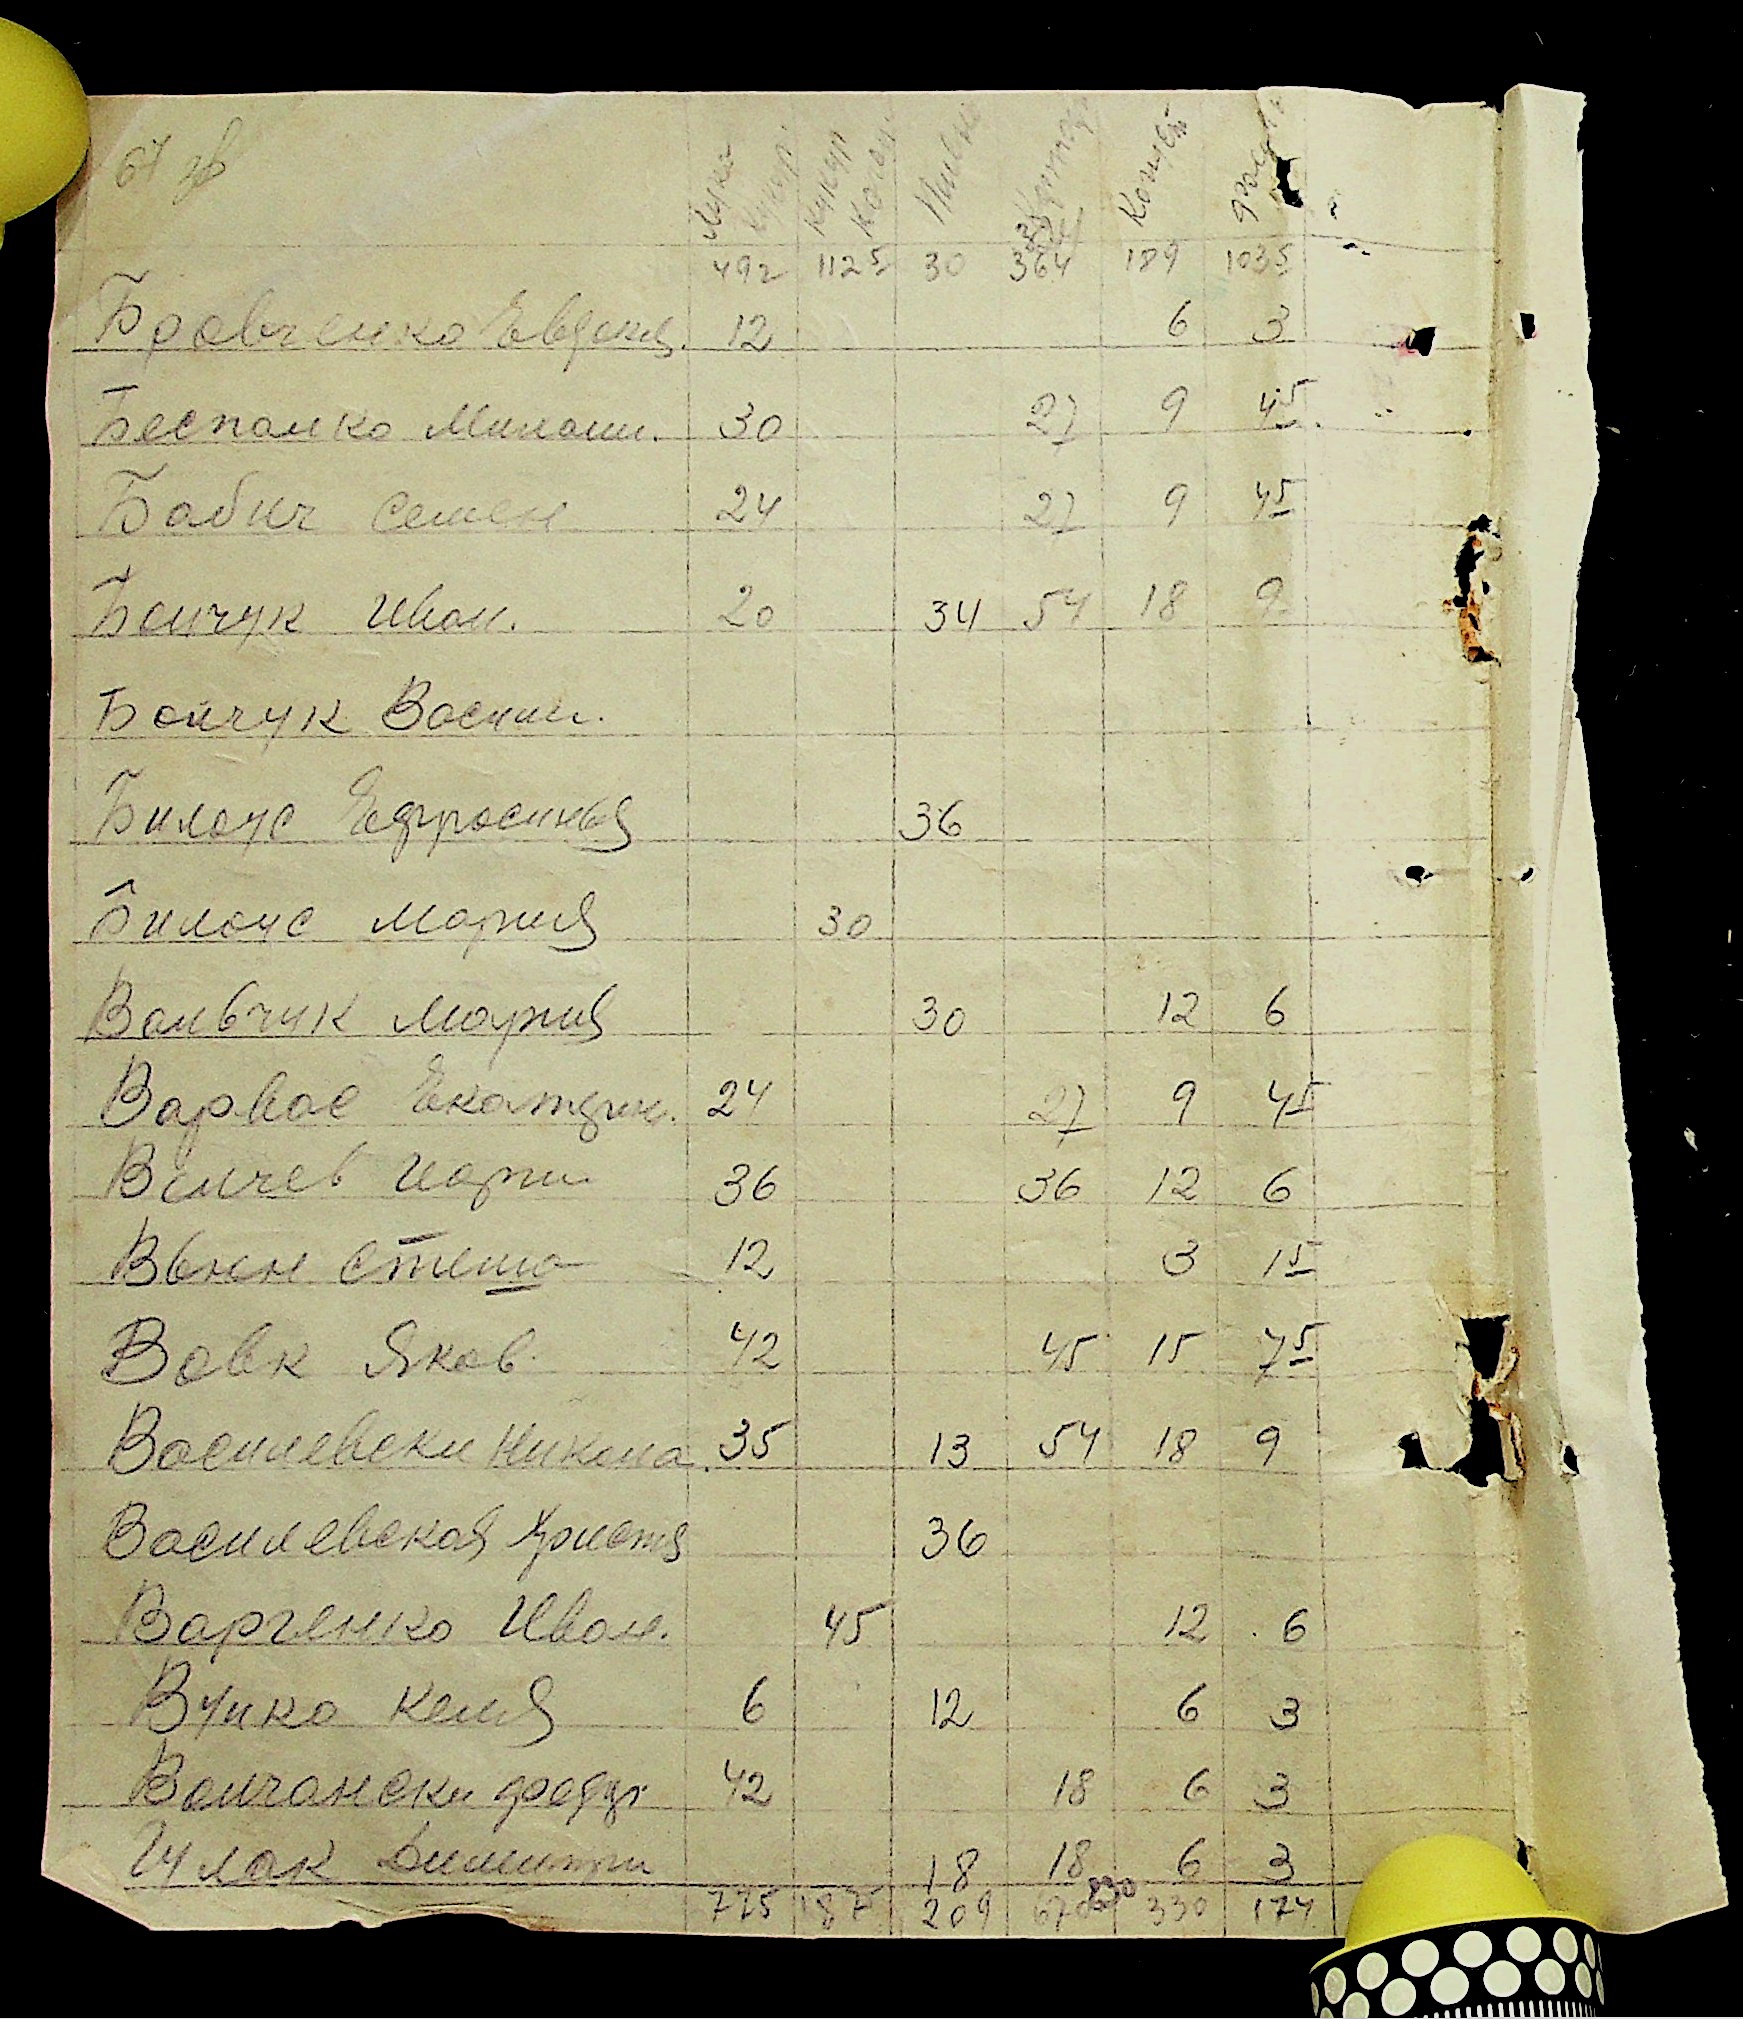 67 зв
Мука кукур кукур Пшен Картоф Комуёт фасоль
492 1125 30 364 189 1035
Бравченко Евдокия. 12 6 3
Беспалко Михаил. 30 27 9 45
Бабич Семен 24 27 9 45
Бойчук Иван. 20 34 54 18 9
Бойчук Васил.
Билоус Ефросинья 36
Билоус Мария 30
Вальвчук Мария 30 12 6
Варвас Екатерин. 24 27 9 45
Вилчев 36 36 12 6
Вьнн Стеша 12 3 15
Вовк Яков. 42 45 15 75
Василевски Никола. 35 13 54 18 9
Василевская Христя 36
Варченко Иван. 45 12 6
Вуйко Келя 6 12 6 3
Волчански 42 18 6 3
Гулак Димитри 18 18 6 3
775 187 209 330 174